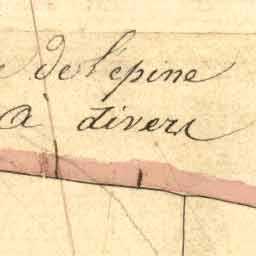 de l'epine
a divers